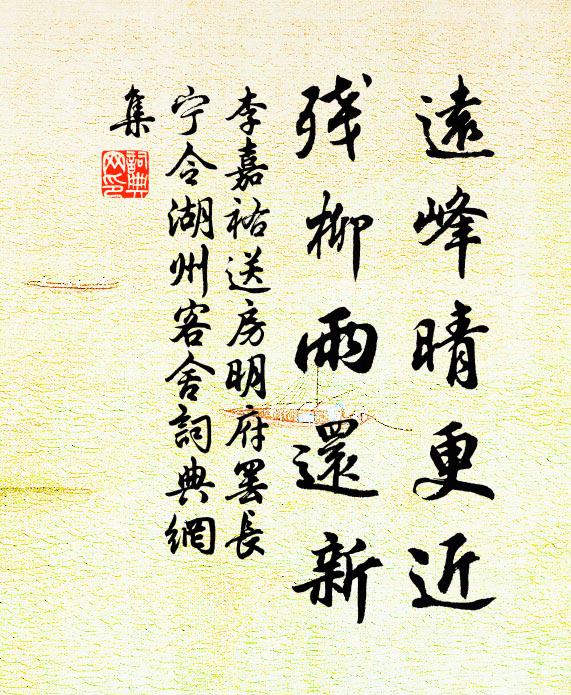 遠峰晴更近
残柳雨還新
李嘉祐送房明府罢長
宁令湖州客舍詞典網
集
詞典网印